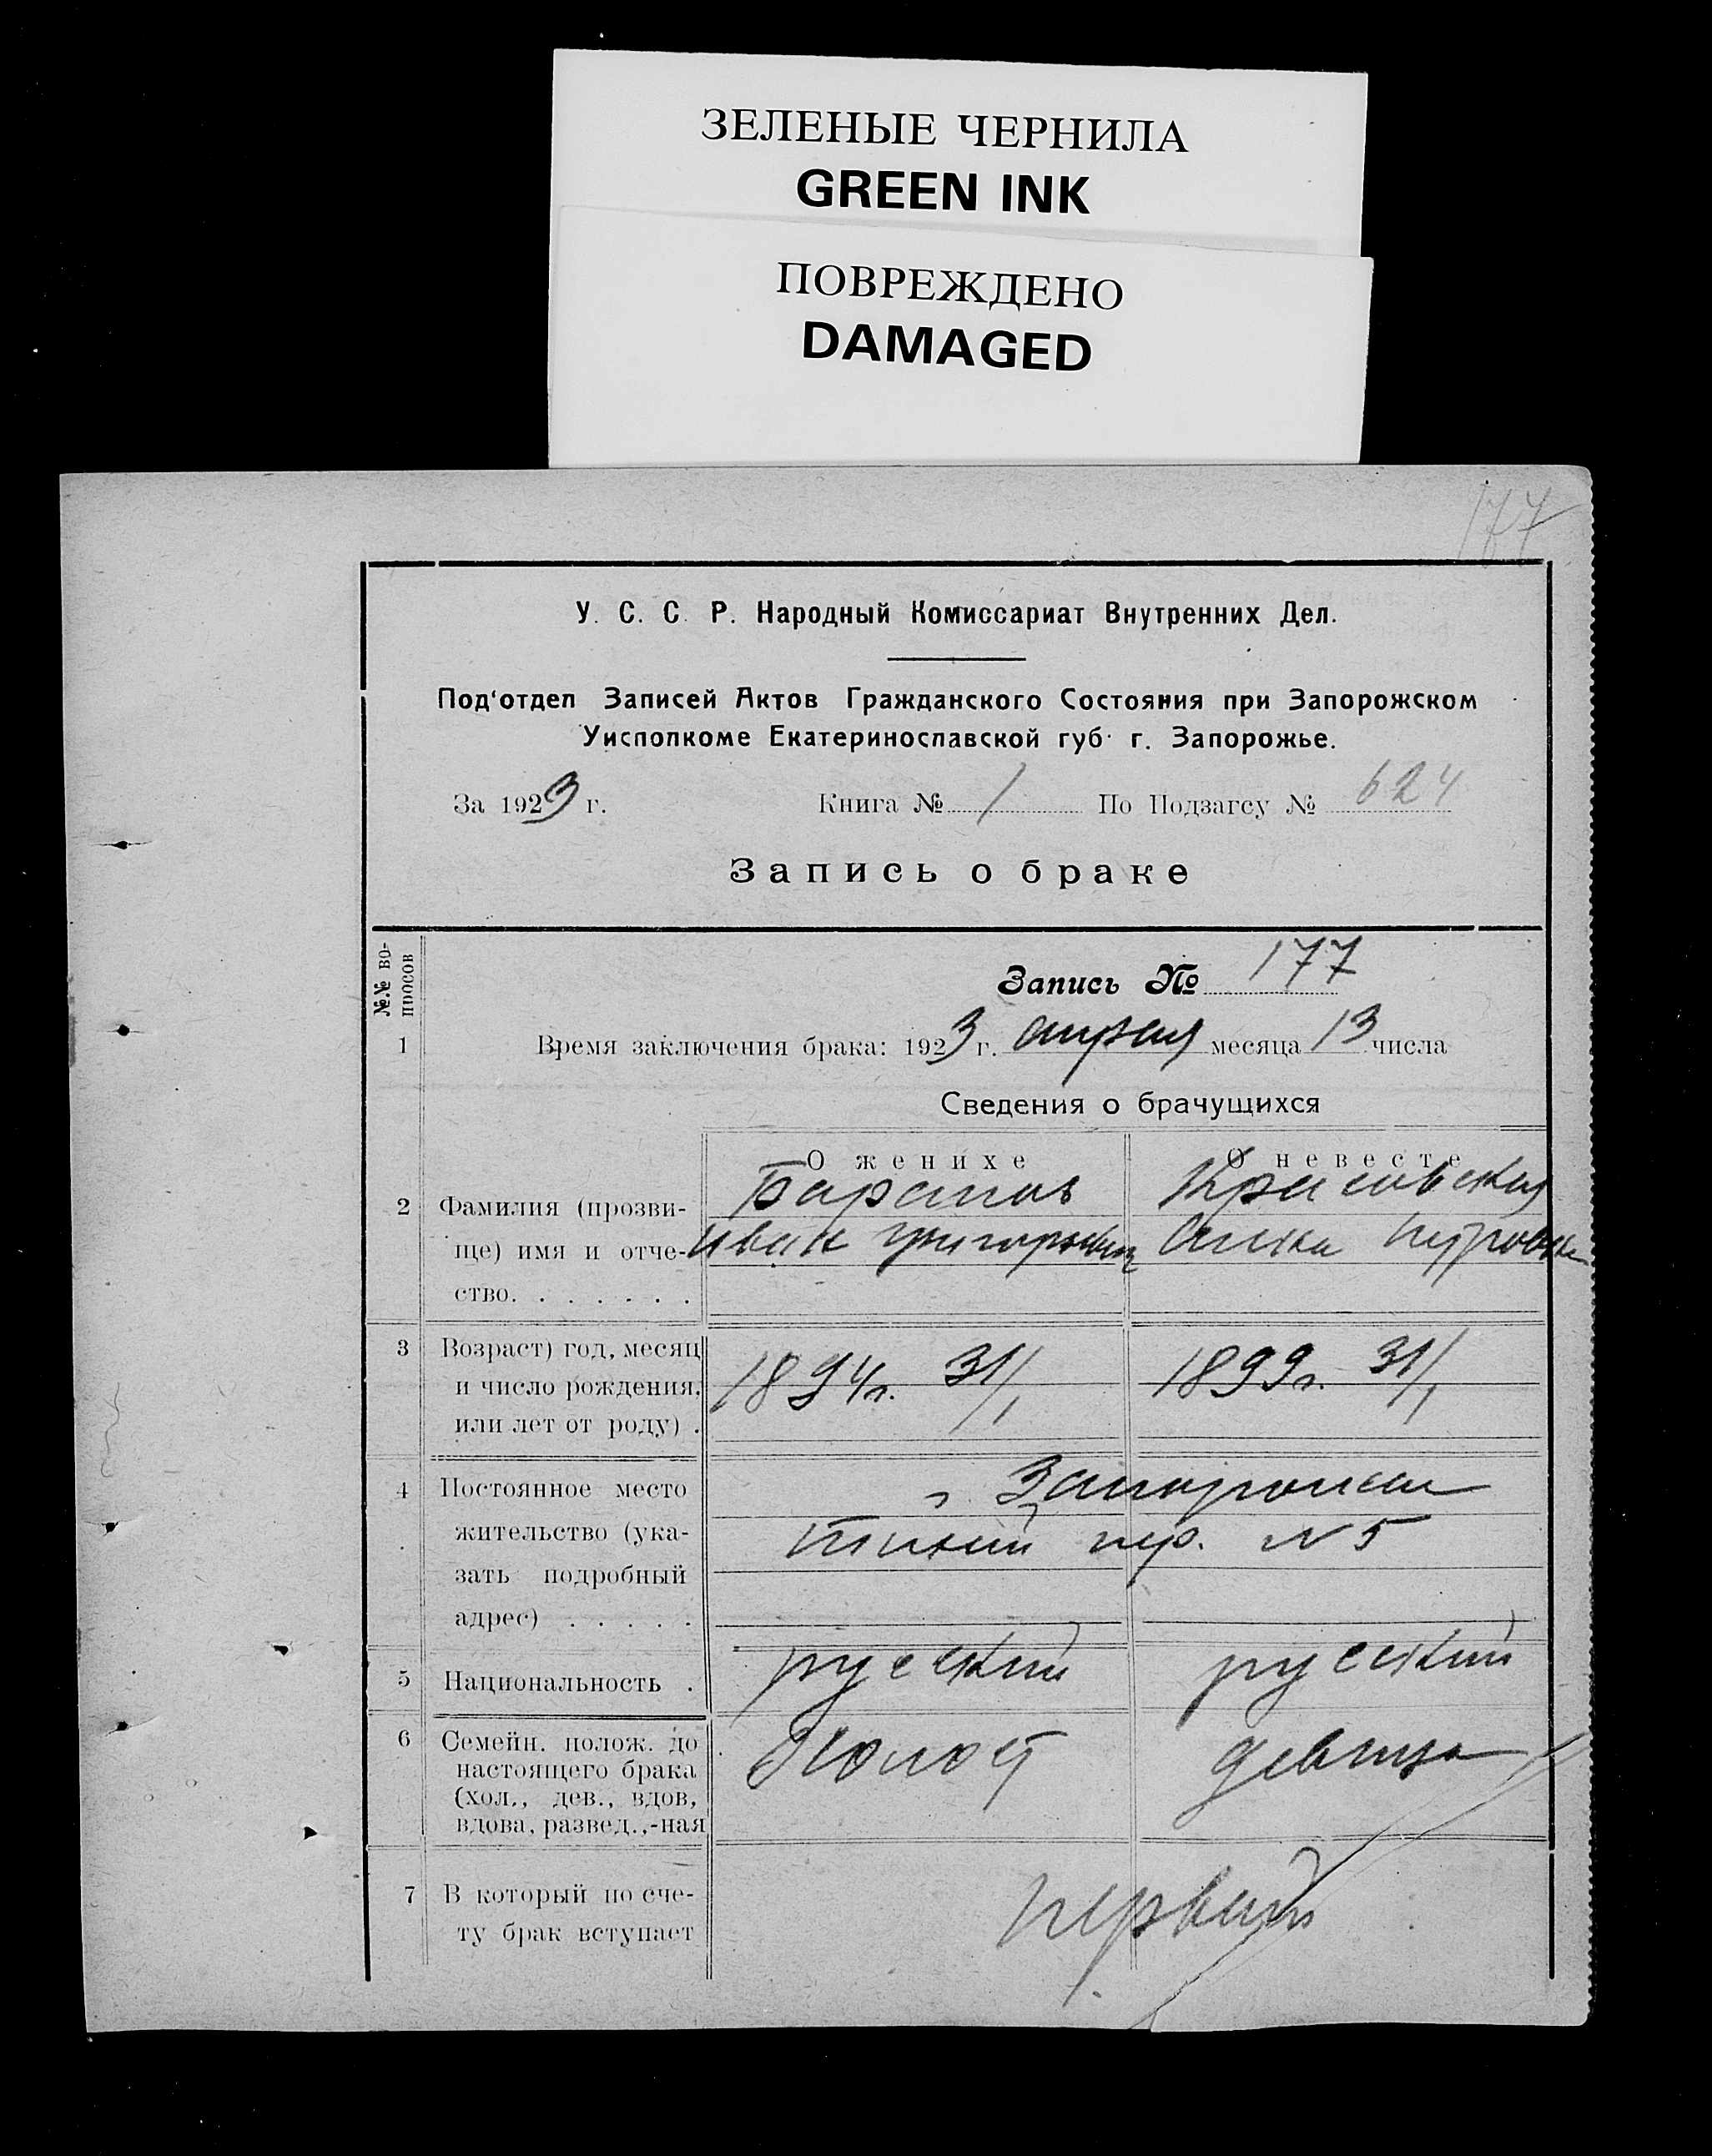 ЗЕЛЕНЫЕ ЧЕРНИЛА
GREEN INK
ПОВРЕЖДЕНО
DAMAGED
177
У. С. С. Р. Народный Комиссариат Внутренних Дел.
Под'отдел Записей Актов Гражданского Состояния при Запорожском
Уисполкоме Екатеринославской губ. г. Запорожье.
За 1923 г. Книга № 1 По Подзагсу № 624
Запись о браке
№№ вопросов
Запись № 177
1 Время заключения брака: 1923 г. апреля месяца 13 числа
Сведения о брачущихся
О женихе О невесте
2 Фамилия (прозви-
ще) имя и отче-
ство. . . . . . .
Иван Григорьевич
Петровна
3 Возраст) год, месяц
и число рождения,
или лет от роду) .
1894г. 31/1 1899г. 31/1
4 Постоянное место
жительство (ука-
зать подробный
адрес) . . . . .
г. Запорожье
пер. № 5
5 Национальность . русский русский
6 Семейн. полож. до
настоящего брака
(хол., дев., вдов,
вдова, развед.,-ная
Холост девица
7 В который по сче-
ту брак вступает
первый